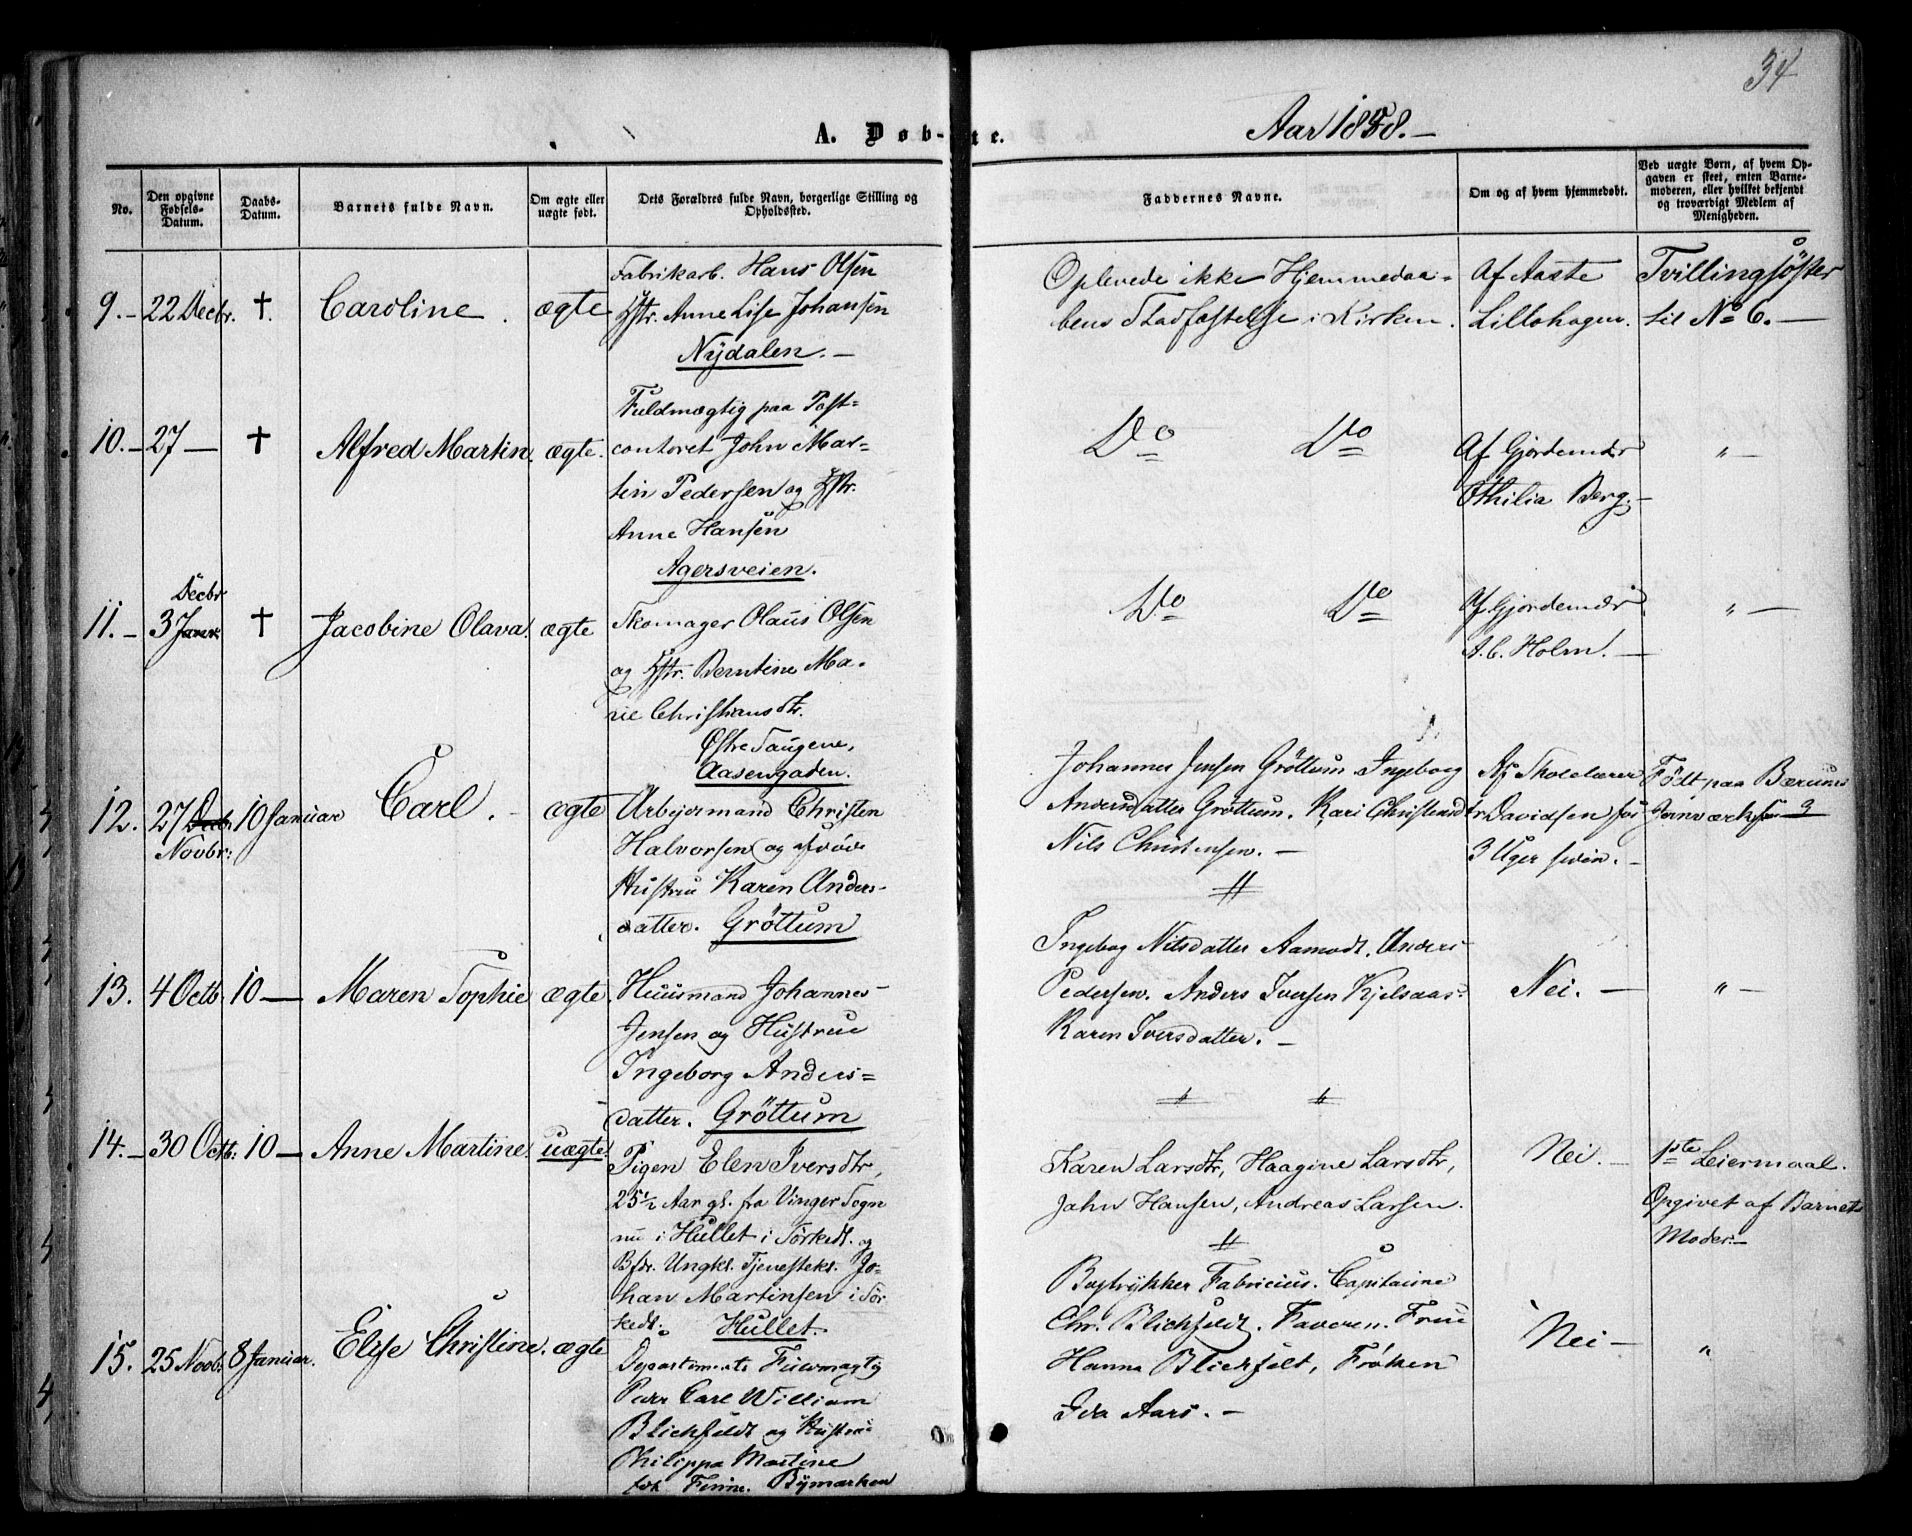 34
A. Døb-te.
Aar 1858.-
No.
Den opgivne Fødsels-Datum.
Daabs-Datum.
Barnets fulde Navn.
Om ægte eller uægte født.
Dets Forældres fulde Navn, borgerlige Stilling og Opholdssted.
Faddernes Navne.
Om og af hvem hjemmedøbt.
Ved uægte Børn, af hvem Opgaven er skeet, enten Barnemoderen, eller hvilket bekjendt og troværdigt Medlem af Menigheden.
9.- 22 Decbr. †. Caroline. ægte
Fabrikarb. Hans Olsen
Hstr. Anne Lise Johansen
Nydalen.-
Oplevede ikke Hjemmedaa-
bens Stadfæstelse i Kirken.
Af Aaste
Lillohagen.
Tvillingsöster
til No 6.-
10.- 27 - † Alfred Martin. ægte.
Fuldmægtig paa Post-
contoret John Mar-
tin Pedersen og Hstr.
Anne Hansen
Agersveien.
Do Do
Af Gjordemdr
Othilia Berg.-
"-
11.- 3 Janr. Decbr † Jacobine Olava. ægte
Skomager Olaus Olsen
og Hstr. Berntine Ma-
rie Christiansdtr.
Östre Saugene,
Aasengaden.
Do Do
Af Gjordemdr
A. C. Holm.-
"-
12. 27 Decb. Novbr: 10 Januar Carl.- ægte
Arbejdsmand Christen
Halvorsen og
Hustru Karen Anders-
datter. Gröttum
Johannes Jensen Gröttum. Ingeborg
Andersdatter Gröttum. Kari Christensdtr
Nils Christensen.-
Af Skolelærer
Davidsen for
3 Uger siden.-
Födt paa Bærums
Jernværk
13. 4 Octb. 10 - Maren Sophie ægte.
Huusmand Johannes
Jensen og Hustrue
Ingeborg Anders=
datter. Gröttum
Ingebog Nilsdatter Aamodt. Anders
Pedersen. Anders Iversen Kjelsaas.
Karen Iversdatter.-
Nei.-
"-
14.- 30 Octb: 10 - Anne Martine. uægte.
Pigen Elen Iversdtr,
25½ Aar gl. fra Vinger Sogn
nu i Hullet i Sörkedl. og
Bfdr. Ungkl. Tjenestekl. Jo-
han Martinsen i Sör-
kedl. Hullet.
Karen Larsdtr, Haagine Larsdtr,
John Hansen, Andreas Larsen.
Nei.-
1ste Leiermaal.
Opgivet af Barnets
Moder.-
15. 25 Novb. 8 Januar. Elise Christine. ægte
Departements Fuldmægtig
Peder Carl William
Blichfeldt og Hustrue
Philippa Martine
fød Finne. Bymarken
Bogtrykker Fabricius. Capitaine
Chr. Blichfeldt. Faderen. Frue
Hanna Blichfelt, Frøken
Ida Aars.-
Nei-
"